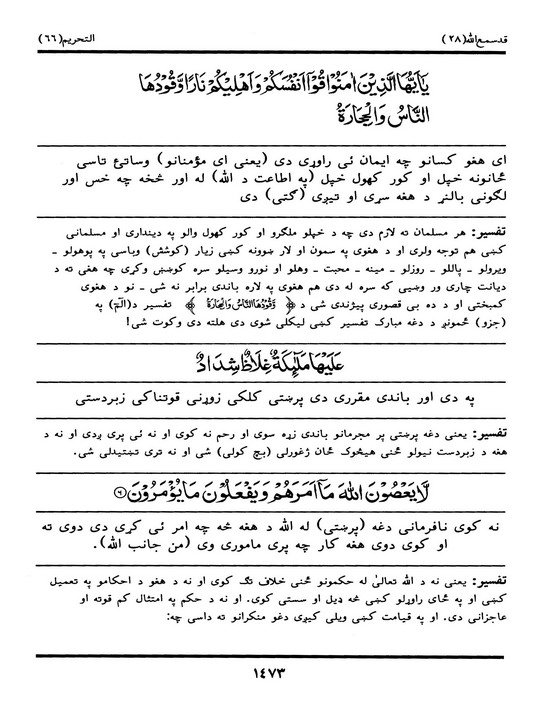 قدسمع الله (٢٨)
التحريم (٦٦)
يَا أَيُّهَا الَّذِيْنَ اٰمَنُوْا قُوْٓا اَنْفُسَكُمْ وَاَهْلِيْكُمْ نَارًا وَّقُوْدُهَا
النَّاسُ وَالْحِجَارَةُ
ای هغو کسانو چه ایمان ئی راوړی دی (یعنی ای مؤمنانو) وساتئ تاسی
ځانونه خپل او کور کهول خپل (په اطاعت د الله) له اور څخه چه خس اور
لګونی بالنړ د هغه سړی او تیږی (ګتی) دی
تفسیر: هر مسلمان ته لازم دی چه د خپلو ملګرو او کور کهول والو په دینداری او مسلمانی
کښی هم توجه ولری او د هغوی په سمون او لار ښوونه کښی زیار (کوشش) وباسی په پوهولو ـ
ویرولو ـ پاللو ـ روزلو ـ مینه ـ محبت ـ وهلو او نورو وسیلو سره کوښښ وکړی چه هغی ته د
دیانت چاری ور وښیی که سره له دی هم هغوی په لاره باندی برابر نه شی ـ نو د هغوی
کمبختی او د ده بی قصوری پیژندی شی د ﴿ وَقُوْدُهَا النَّاسُ وَالْحِجَارَةُ ﴾ تفسیر د(الٓمّٓ) په
(جزو) ځمونږ د دغه مبارک تفسیر کښی لیکلی شوی دی هلته دی وکوت شی!
عَلَيْهَا مَلٰٓئِكَةٌ غِلَاظٌ شِدَادٌ
په دی اور باندی مقرری دی پرښتی کلکی زوړنی قوتناکی زبردستی
تفسیر: یعنی دغه پرښتی پر مجرمانو باندی زړه سوی او رحم نه کوی او نه ئی پری ږدی او نه د
هغه د زبردست نیولو ځنی هیڅوک ځان ژغورلی (بچ کولی) شی او نه تری تښتیدلی شی.
لَّا يَعْصُوْنَ اللّٰهَ مَآ اَمَرَهُمْ وَيَفْعَلُوْنَ مَا يُؤْمَرُوْنَ ۝٦
نه کوی نافرمانی دغه (پرښتی) له الله د هغه څه چه امر ئی کړی دی دوی ته
او کوی دوی هغه کار چه پری ماموری وی (من جانب الله).
تفسیر: یعنی نه د الله تعالیٰ له حکمونو ځنی خلاف تګ کوی او نه د هغو د احکامو په تعمیل
کښی او په ځای راوړلو کښی څه ډیل او سستی کوی. او نه د حکم په امتثال کم قوته او
عاجزانی دی. او په قیامت کښی ویلی کیږی دغو منکرانو ته داسی چه:
١٤٧٣